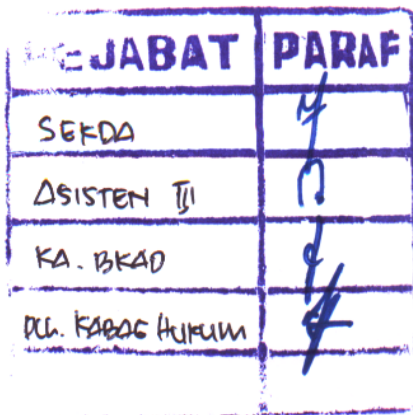 PEJABAT PARAF
SEKDA
ASISTEN III
KA. BKAD
PLH. KABAG HUKUM